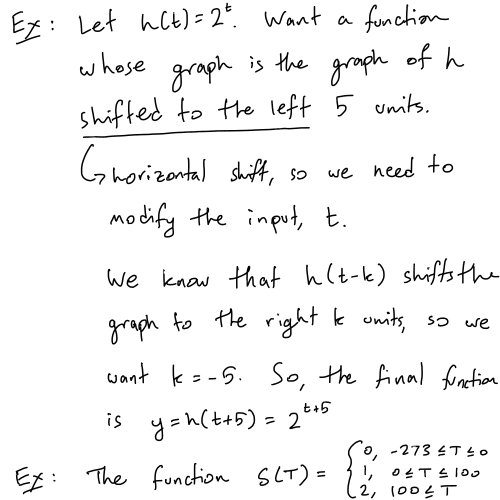 Ex: Let h(t)=2^t. Want a function
whose graph is the graph of h
shifted to the left 5 units.
↳ horizontal shift, so we need to
modify the input, t.
We know that h(t-k) shifts the
graph to the right k units, so we
want k=-5. So, the final function
is y=h(t+5)=2^{t+5}
Ex: The function S(T)= { 0, -273≤T≤0
1, 0≤T≤100
2, 100≤T